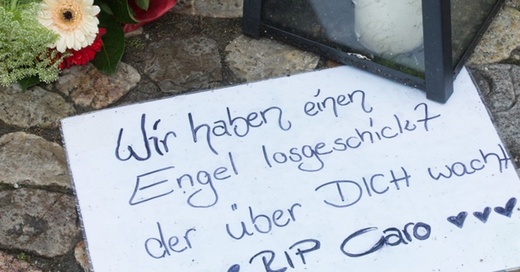 Wir haben einen
Engel losgeschickt
der über DICH wacht
♥ RIP Caro ♥♥♥